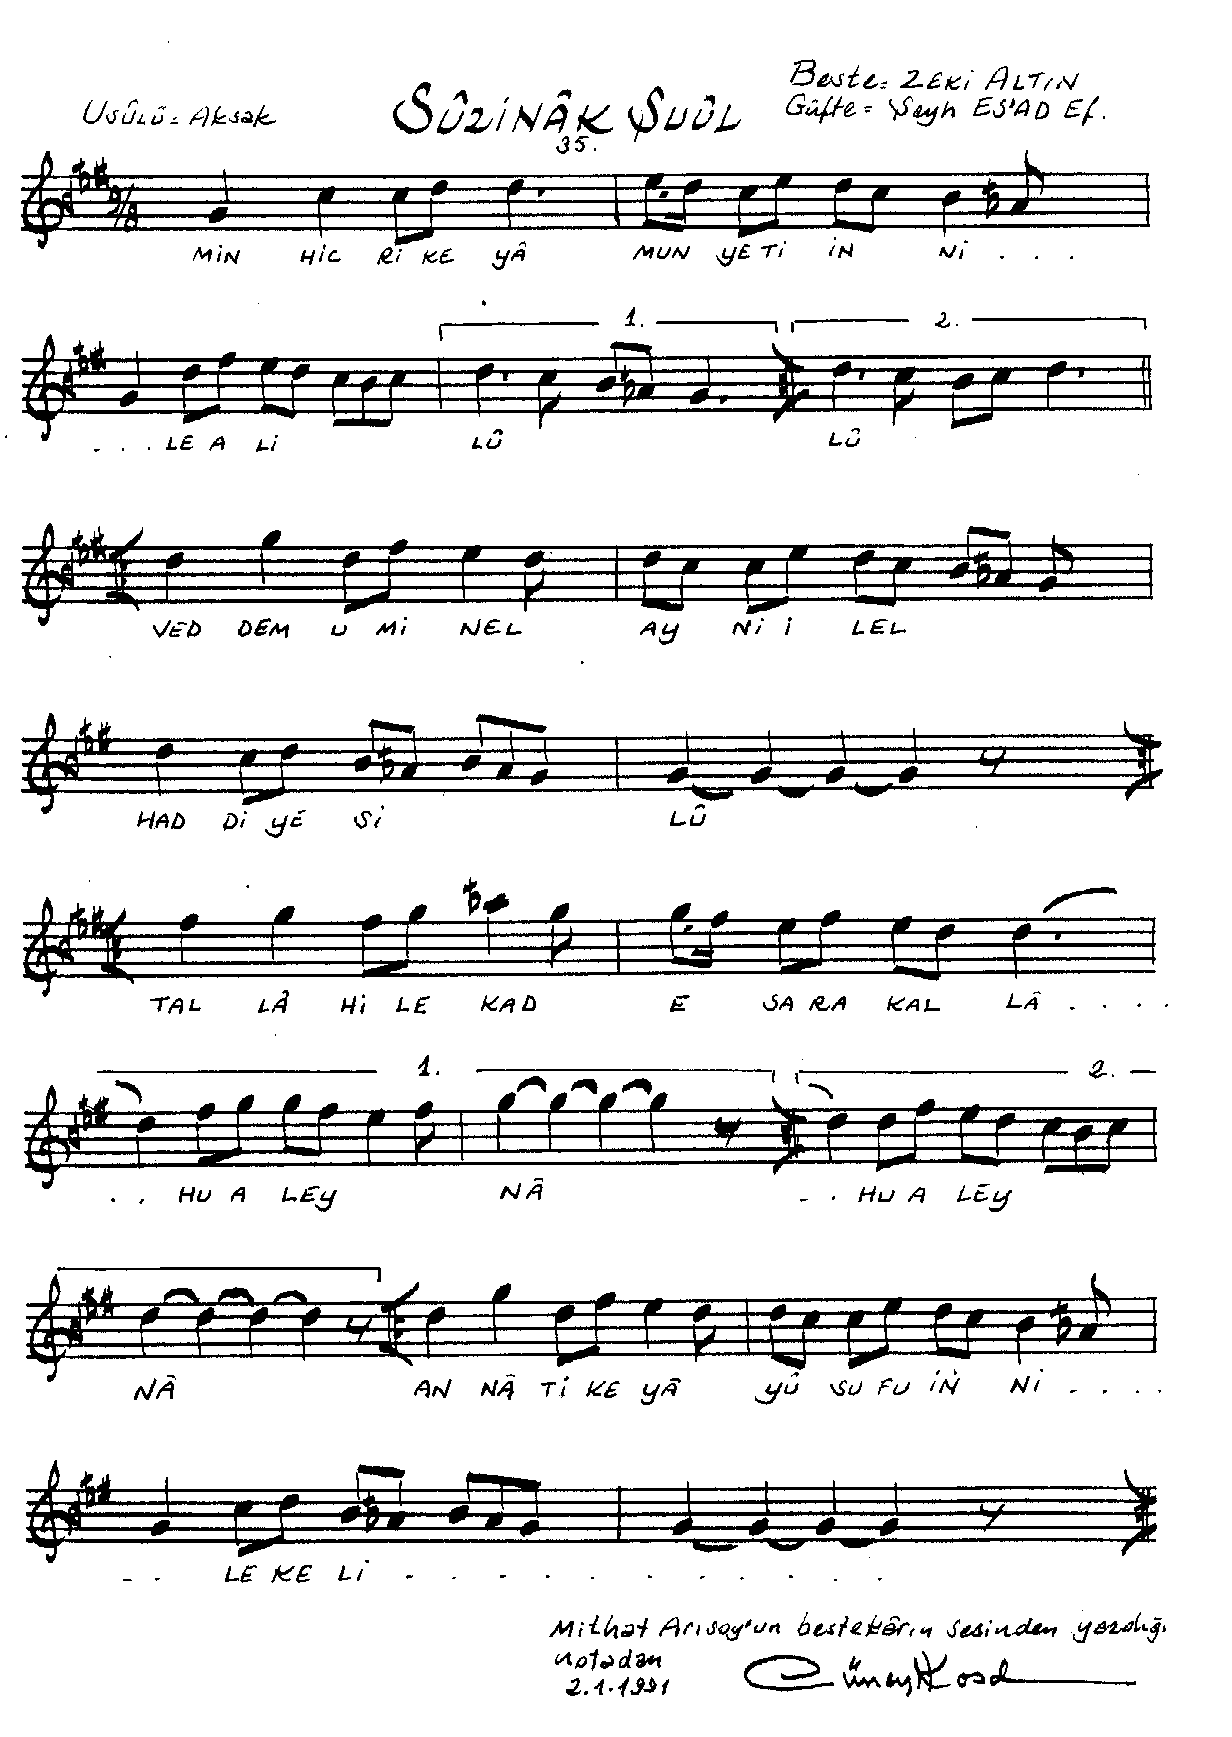 Usûlü = Aksak
SÛZİNÂK ŞUÛL
35.
Beste = ZEKİ ALTIN
Güfte = Şeyh ES'AD Ef.
9/8
MİN HİC Rİ KE YÂ MUN YE Tİ İN Nİ . . .
1. 2.
. . . LE A Lİ LÛ LÛ
VED DEM U Mİ NEL AY Nİ İ LEL
HAD Dİ YE Sİ LÛ
TAL LÂ Hİ LE KAD E SA RA KAL LÂ . . . .
1. 2.
. . HU A LEY NÂ . . HU A LEY
NÂ AN NÂ Tİ KE YÂ YÛ SU FU İN Nİ . . . .
. . LE KE Lİ . . . . . . . . .
Mithat Arısoy'un bestekârın sesinden yazdığı
notadan
2.1.1991